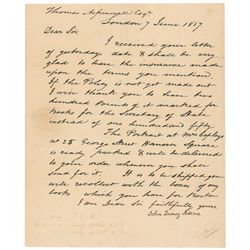 Thomas Aspinwall Esqr
London 7 June 1817
Dear Sir.
I received your letter
of yesterday's date & shall be very
glad to have the insurance made
upon the terms you mention.
If the Policy is not get made out
I will thank you to have two
hundred Pounds of it marked for
Books for the Secretary of State
instead of one hundred and fifty.
The Portrait at Mr Leslie's
No 28 George Street Hanover Square
is ready packed & will be delivered
to your order whenever you shall
send for it. It is to be shipped you
will recollect with the boxes of my
books which you have for Boston
I am Dear Sir faithfully yours
John Quincy Adams